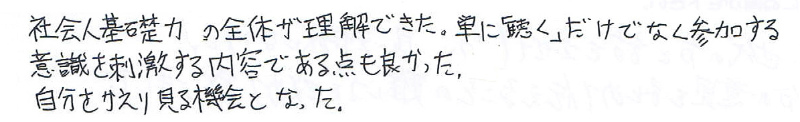 社会人基礎力 の全体が理解できた。単に「聴く」だけでなく参加する
意識を刺激する内容である点も良かった。
自分をかえり見る機会となった。